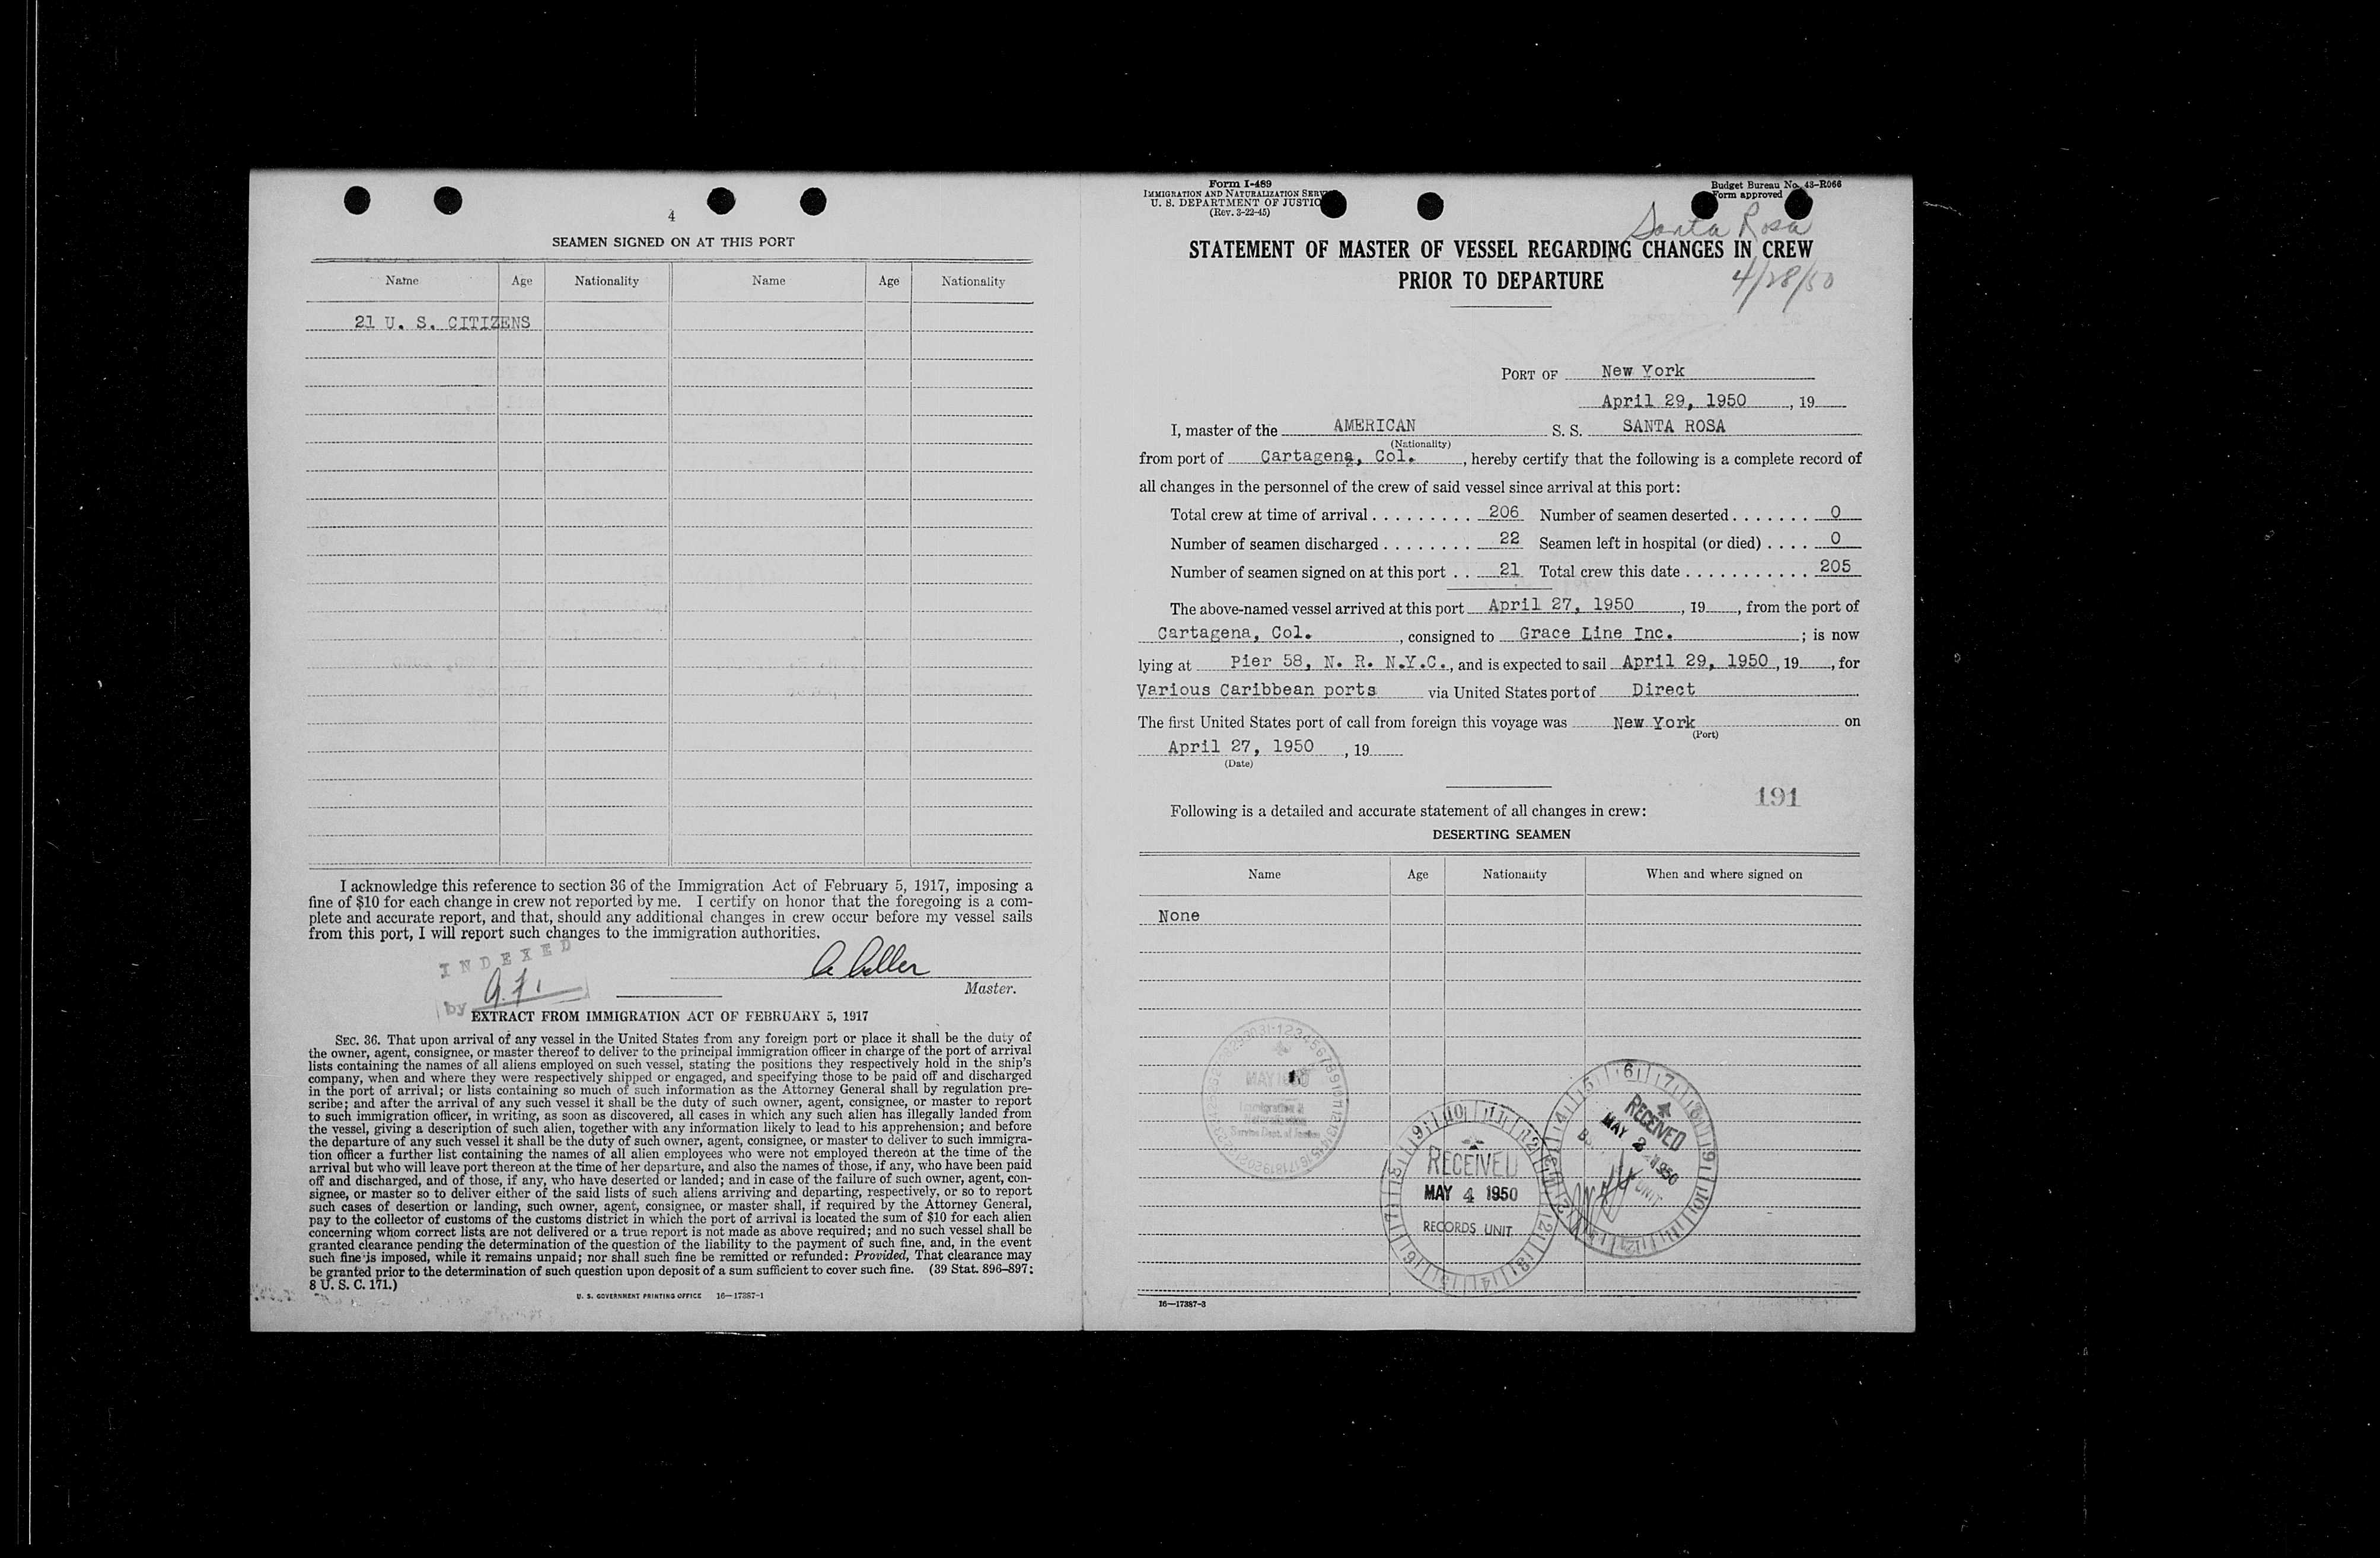 4
SEAMEN SIGNED ON AT THIS PORT
Name Age Nationality Name Age Nationality
21 U. S. CITIZENS
I acknowledge this reference to section 36 of the Immigration Act of February 5, 1917, imposing a
fine of $10 for each change in crew not reported by me. I certify on honor that the foregoing is a com-
plete and accurate report, and that, should any additional changes in crew occur before my vessel sails
from this port, I will report such changes to the immigration authorities.
INDEXED
by
Master.
EXTRACT FROM IMMIGRATION ACT OF FEBRUARY 5, 1917
SEC. 36. That upon arrival of any vessel in the United States from any foreign port or place it shall be the duty of
the owner, agent, consignee, or master thereof to deliver to the principal immigration officer in charge of the port of arrival
lists containing the names of all aliens employed on such vessel, stating the positions they respectively hold in the ship's
company, when and where they were respectively shipped or engaged, and specifying those to be paid off and discharged
in the port of arrival; or lists containing so much of such information as the Attorney General shall by regulation pre-
scribe; and after the arrival of any such vessel it shall be the duty of such owner, agent, consignee, or master to report
to such immigration officer, in writing, as soon as discovered, all cases in which any such alien has illegally landed from
the vessel, giving a description of such alien, together with any information likely to lead to his apprehension; and before
the departure of any such vessel it shall be the duty of such owner, agent, consignee, or master to deliver to such immigra-
tion officer a further list containing the names of all alien employees who were not employed thereon at the time of the
arrival but who will leave port thereon at the time of her departure, and also the names of those, if any, who have been paid
off and discharged, and of those, if any, who have deserted or landed; and in case of the failure of such owner, agent, con-
signee, or master so to deliver either of the said lists of such aliens arriving and departing, respectively, or so to report
such cases of desertion or landing, such owner, agent, consignee, or master shall, if required by the Attorney General,
pay to the collector of customs of the customs district in which the port of arrival is located the sum of $10 for each alien
concerning whom correct lists are not delivered or a true report is not made as above required; and no such vessel shall be
granted clearance pending the determination of the question of the liability to the payment of such fine, and, in the event
such fine is imposed, while it remains unpaid; nor shall such fine be remitted or refunded: Provided, That clearance may
be granted prior to the determination of such question upon deposit of a sum sufficient to cover such fine. (39 Stat. 896-897;
8 U. S. C. 171.)
U. S. GOVERNMENT PRINTING OFFICE 16—17387-1
Form I-489
IMMIGRATION AND NATURALIZATION SERV
U. S. DEPARTMENT OF JUSTIC
(Rev. 3-22-45)
Budget Bureau No. 43-R066
Form approved
Santa Rosa
STATEMENT OF MASTER OF VESSEL REGARDING CHANGES IN CREW
PRIOR TO DEPARTURE
4/28/50
PORT OF New York
April 29, 1950, 19
I, master of the AMERICAN S. S. SANTA ROSA
(Nationality)
from port of Cartagena, Col., hereby certify that the following is a complete record of
all changes in the personnel of the crew of said vessel since arrival at this port:
Total crew at time of arrival 206 Number of seamen deserted 0
Number of seamen discharged 22 Seamen left in hospital (or died) 0
Number of seamen signed on at this port 21 Total crew this date 205
The above-named vessel arrived at this port April 27, 1950, 19, from the port of
Cartagena, Col., consigned to Grace Line Inc.; is now
lying at Pier 58, N. R. N.Y.C., and is expected to sail April 29, 1950, 19, for
Various Caribbean ports via United States port of Direct
The first United States port of call from foreign this voyage was New York on
(Port)
April 27, 1950, 19
(Date)
191
Following is a detailed and accurate statement of all changes in crew:
DESERTING SEAMEN
Name Age Nationality When and where signed on
None
MAY 1950
Immigration &
Naturalization
Service Dept. of Justice
RECEIVED
MAY 4 1950
RECORDS UNIT
RECEIVED
MAY 2 1950
UNIT
16—17387-3